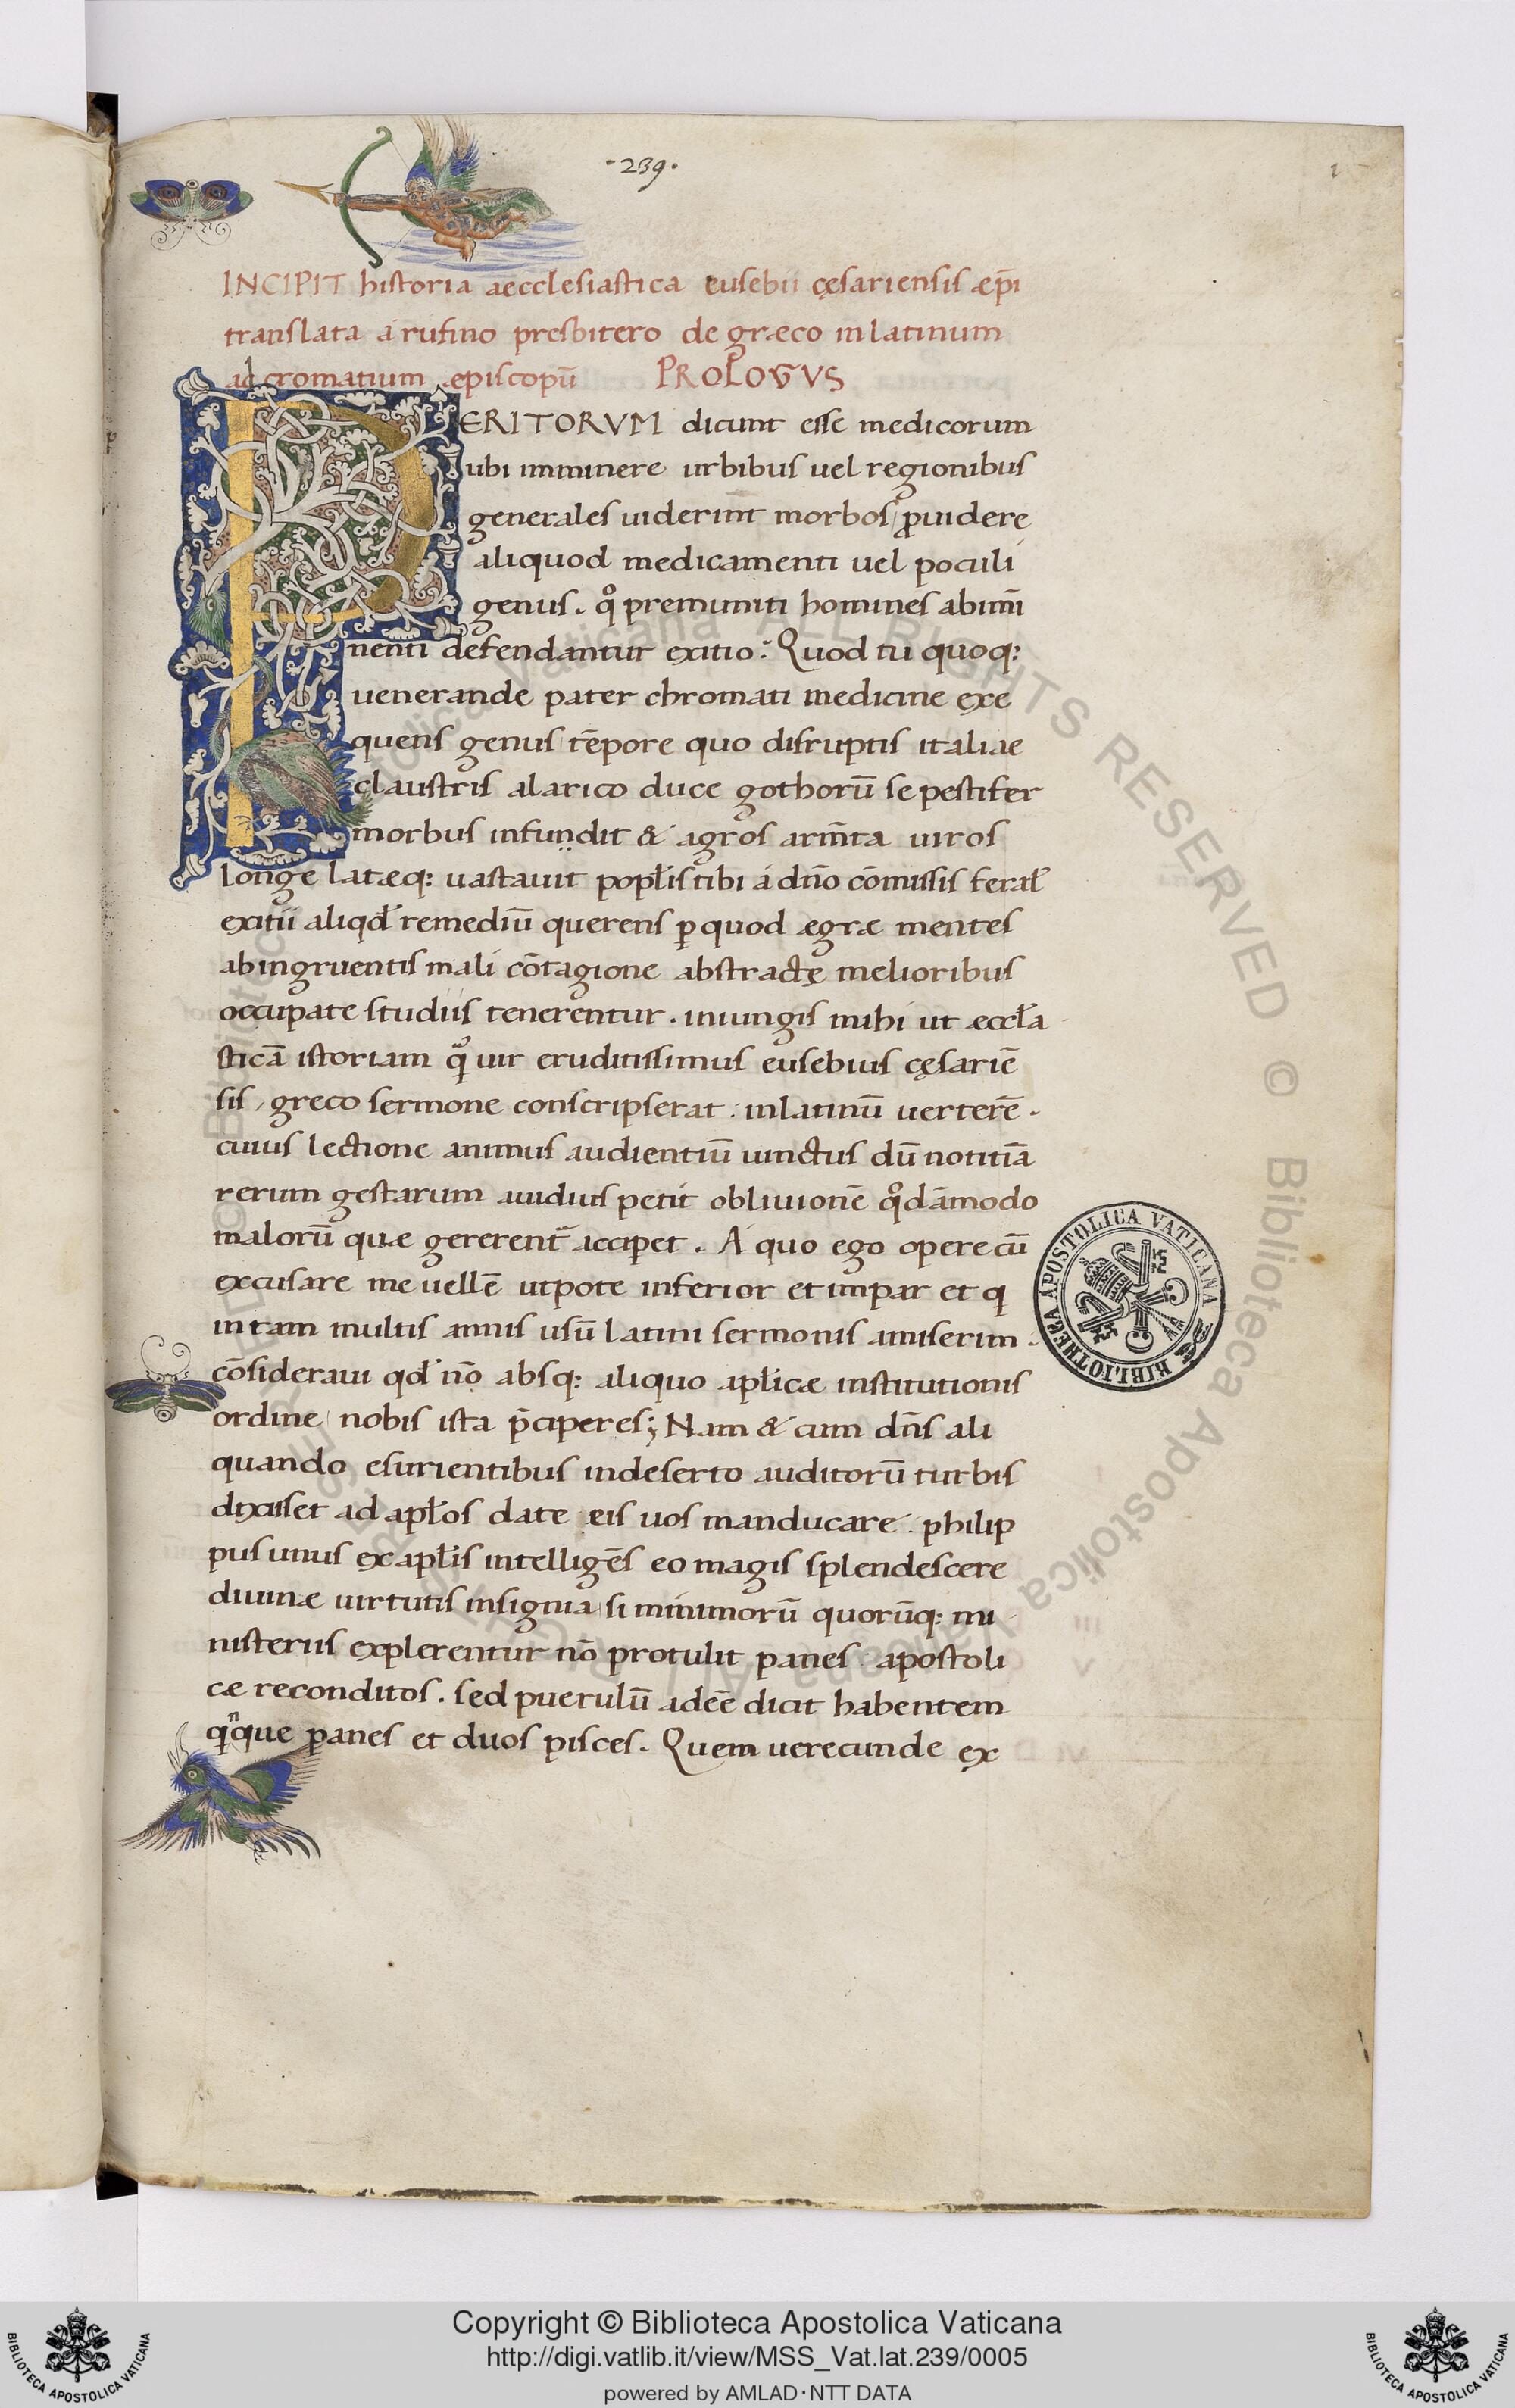 ·239·
1
INCIPIT historia aecclesiastica eusebii cęsariensis æp̄i
translata á rufino presbitero de græco in latinum
ad cromatium æpiscopū PROLOGVS
PERITORVM dicunt esse medicorum
ubi imminere urbibus uel regionibus
generales uiderint morbos ꝓuidere
aliquod medicamenti uel poculi
genus. qͦ premuniti homines ab im̄i
nenti defendantur exitio: Quod tu quoq:
uenerande pater chromati medicine exe
quens genus tēpore quo disruptis italiae
claustris alarico duce gothorū se pestifer
morbus infundit & agros arm̄ta uiros
longe latæq: uastauit popl̄is tibi á dn̄o cōmissis feral̄
exitii aliqd̄ remediū querens ꝑ quod ægræ mentes
ab ingruentis mali cōtagione abstractę melioribus
occupate studiis tenerentur. iniungis mihi ut æccl̄a
sticā istoriam qͣ̄ uir eruditissimus eusebius cęsariē
sis, greco sermone conscripserat: in latinū uerterē.
cuius lectione animus audientiū uinctus dū notitiā
rerum gestarum auidius petit obliuionē qͦdāmodo
malorū quæ gererent̄ acciperet. Á quo ego opere cū
excusare me vellē utpote inferior et impar et qͥ
in tam multis annis usū latini sermonis amiserim.
cōsideraui qd̄ nō absq: aliquo apl̄icæ institutionis
ordine nobis ista p̄ciperes; Nam & cum dn̄s ali
quando esurientibus in deserto auditorū turbis
dixisset ad apl̄os date eis uos manducare. philip
pus unus ex apl̄is intelligēs eo magis splendescere
diuinæ uirtutis insignia si minimorū quorūq: mi
nisteriis explerentur nō protulit panes apostoli
cæ reconditos. sed puerulū adeē dicit habentem
qͥnque panes et duos pisces. Quem uerecunde ex
BIBLIOTHECA APOSTOLICA VATICANA
© Biblioteca Apostolica Vaticana ALL RIGHTS RESERVED © Biblioteca Apostolica Vaticana ALL RIGHTS RESERVED
Copyright © Biblioteca Apostolica Vaticana
http://digi.vatlib.it/view/MSS_Vat.lat.239/0005
powered by AMLAD·NTT DATA
BIBLIOTECA APOSTOLICA VATICANA
BIBLIOTECA APOSTOLICA VATICANA